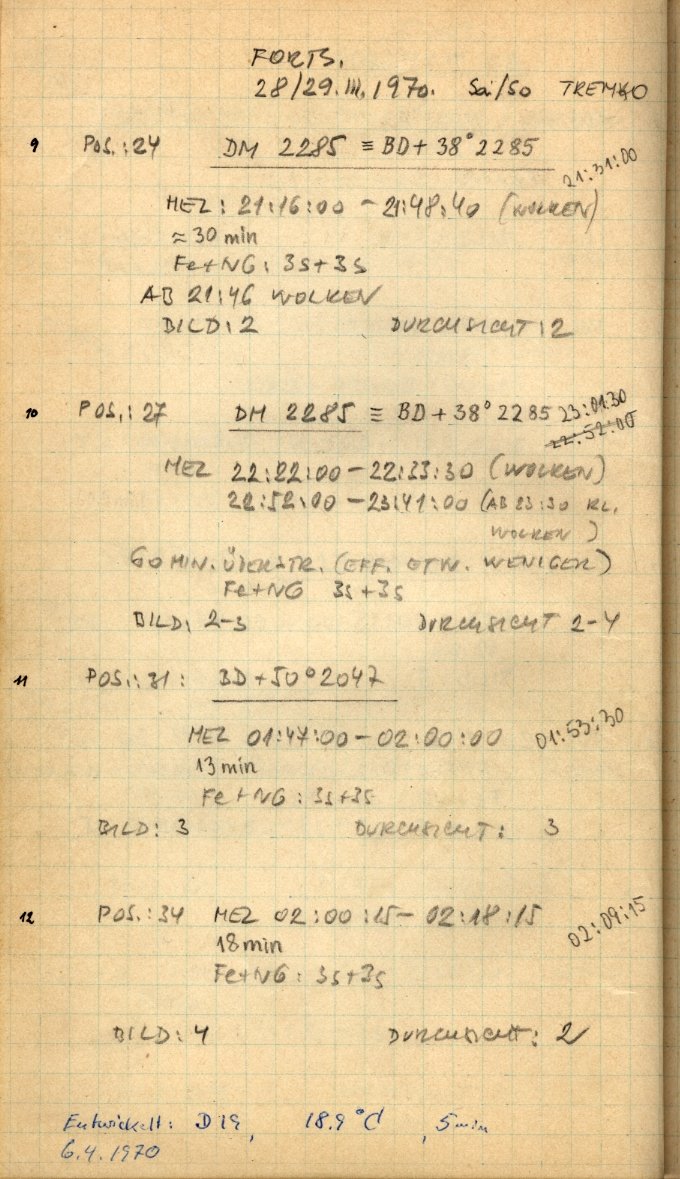 FORTS.
28/29.III.1970. Sa/So TREMKO
9 POS.:24 DM 2285 ≡ BD+38°2285
21:31:00
MEZ: 21:16:00 - 21:48:40 (WOLKEN)
≈30 min
Fe+NG: 3s+3s
AB 21:46 WOLKEN
BILD: 2 DURCHSICHT: 2
10 POS.: 27 DM 2285 ≡ BD+38°2285 23:01:30
22:52:00
MEZ 22:22:00 - 22:33:30 (WOLKEN)
22:52:00 - 23:41:00 (AB 23:30 KL.
WOLKEN)
60 MIN. ÜBERSTR. (EFF. ETW. WENIGER)
Fe+NG 3s+3s
BILD: 2-3 DURCHSICHT 2-4
11 POS.: 31: BD+50°2047
MEZ 01:47:00 - 02:00:00 01:53:30
13 min
Fe+NG: 3s+3s
BILD: 3 DURCHSICHT: 3
12 POS.: 34 MEZ 02:00:15 - 02:18:15 02:09:15
18 min
Fe+NG: 3s+3s
BILD: 4 DURCHSICHT: 2
Entwickelt: D19, 18.9°C, 5min
6.4.1970